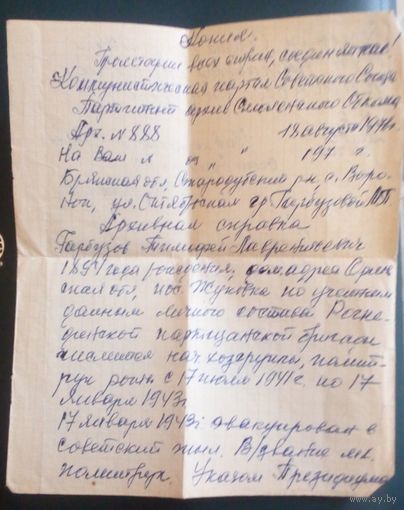 Копия.
Пролетарии всех стран, соединяйтесь!
Коммунистическая партия Советского Союза
Партийный архив Смоленского Обкома
Арх. № 888 18 августа 1976 г
На Вам № от " " 197 г.
Брянская обл, Стародубский р-н, с. Воро-
нок, ул. Октябрьская гр Гарбузовой
Архивная справка
Гарбузов Тимофей
года рождения, дом. адрес Орлов
ская обл, пос Жуковка по учетным
данным личного состава Рогне-
динской партизанской бригады
числился нач. полит-
рук роты с 17 июля 1941 г. по 17
января 1943 г
17 января 1943 г эвакуирован в
советский тыл. В/звание мл.
политрук. Указом Президиума
ay.by